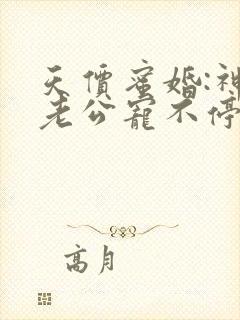 天價蜜婚:神
老公寵不停
高月